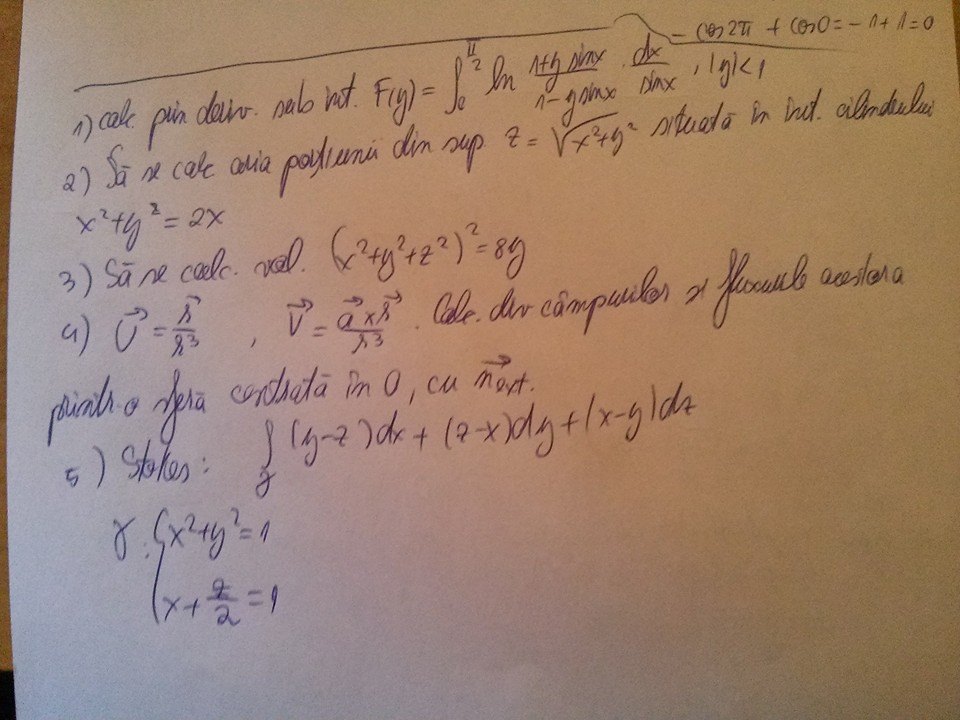 - cos2π + cos0 = - 1 + 1 = 0
1) calc. prin deriv. sub int. F(y) = ∫₀^{π/2} ln (1+y sinx)/(1-y sinx) · dx/sinx , |y|<1
2) Să se calc aria porțiunii din sup. z = √(x²+y²) situată în int. cilindrului
x²+y² = 2x
3) Să se calc. vol. (x²+y²+z²)² = 8y
4) U⃗ = r⃗/r³ , V⃗ = (a⃗ x r⃗)/r³ . Calc. div câmpurilor și fluxurile acestora
printr-o sferă centrată în O, cu n⃗ext.
5) Stokes: ∫_γ (y-z)dx + (z-x)dy + (x-y)dz
γ: { x²+y² = 1
x + z/2 = 1